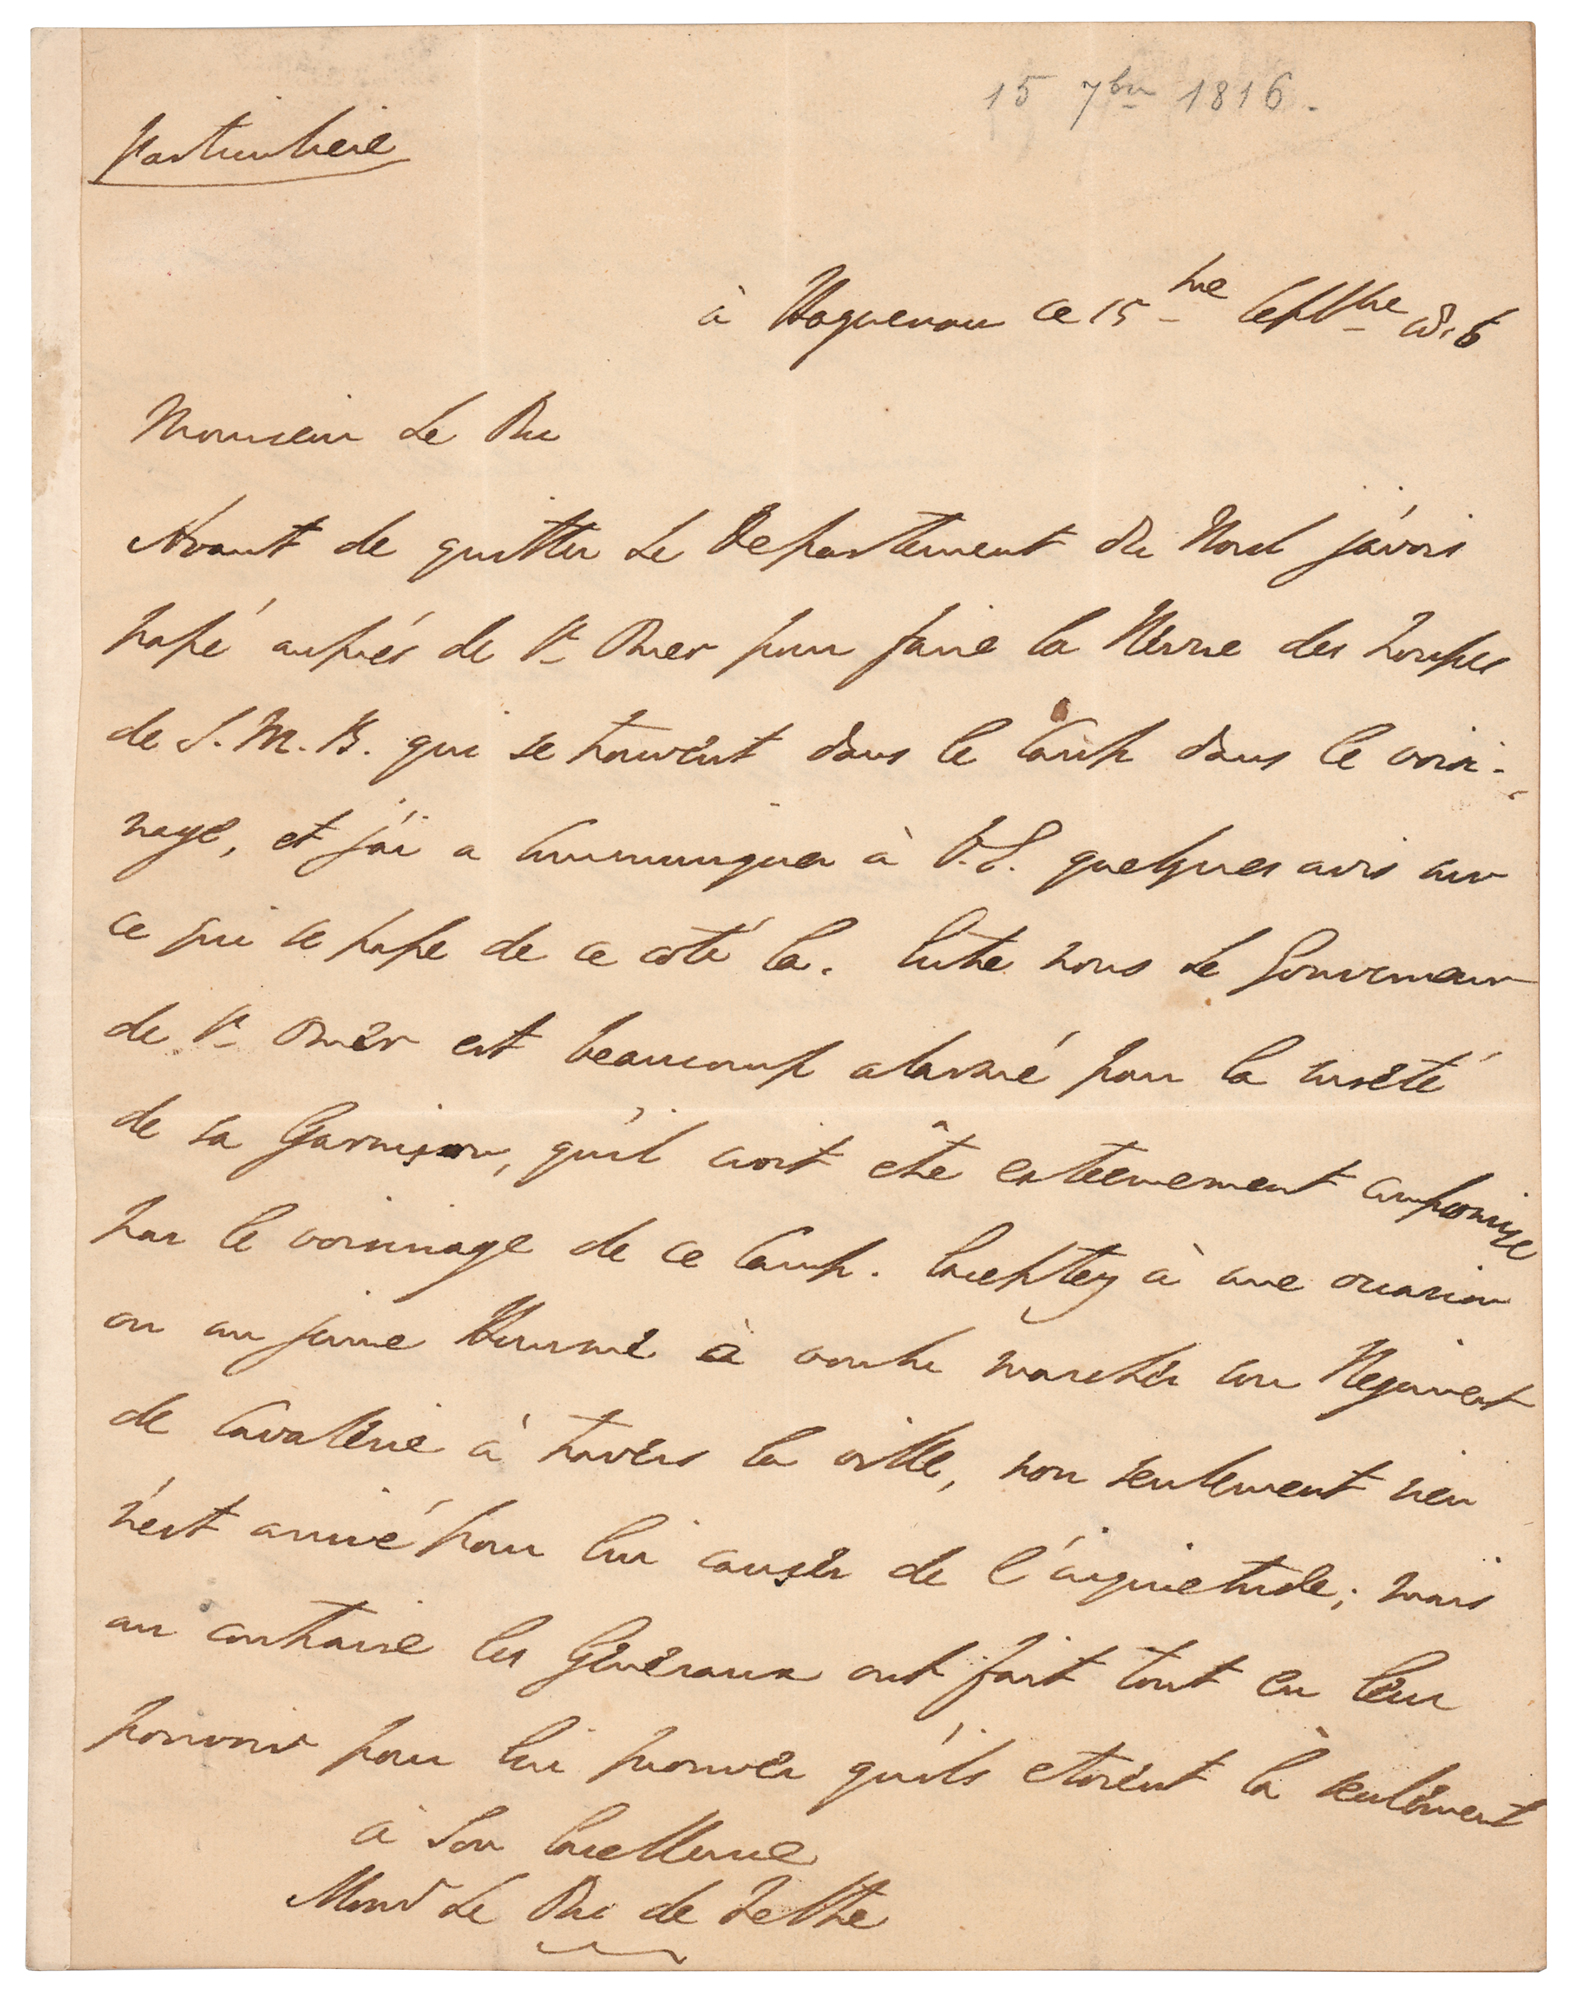 15 7bre 1816.
Particuliere
à Haguenau ce 15 - me Septbre 1816
Monsieur Le Duc
Avant de quitter Le Departement du Nord j'avois
passé auprés de St Omer pour faire la Revue des troupes
de S. M. B. qui se trouvent dans le Camp dans le voisi-
nage, et j'ai a communiquer à V. E. quelques avis sur
ce qui se passe de ce coté la. Entre nous Le Gouverneur
de St Omer est beaucoup alarmé pour la sureté
de sa Garnison, qu'il croit etre extremement compromise
par le voisinage de ce Camp. Exceptez à une occasion
ou un jeune Hussard à voulu marcher son Regiment
de Cavalerie à travers la ville, non seulement rien
n'est arrivé pour lui causer de l'inquietude; mais
au contraire les Généraux ont fait tout en leur
pouvoir pour lui prouver qu'ils etoient là seulement
à Son Excellence
Monsr Le Duc de Feltre